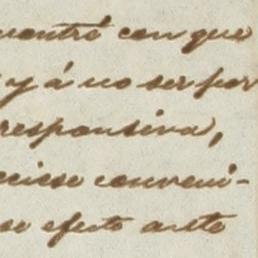 uontré con que
y á no ser por
responsiva,
eciese conveni-
se efecto ante